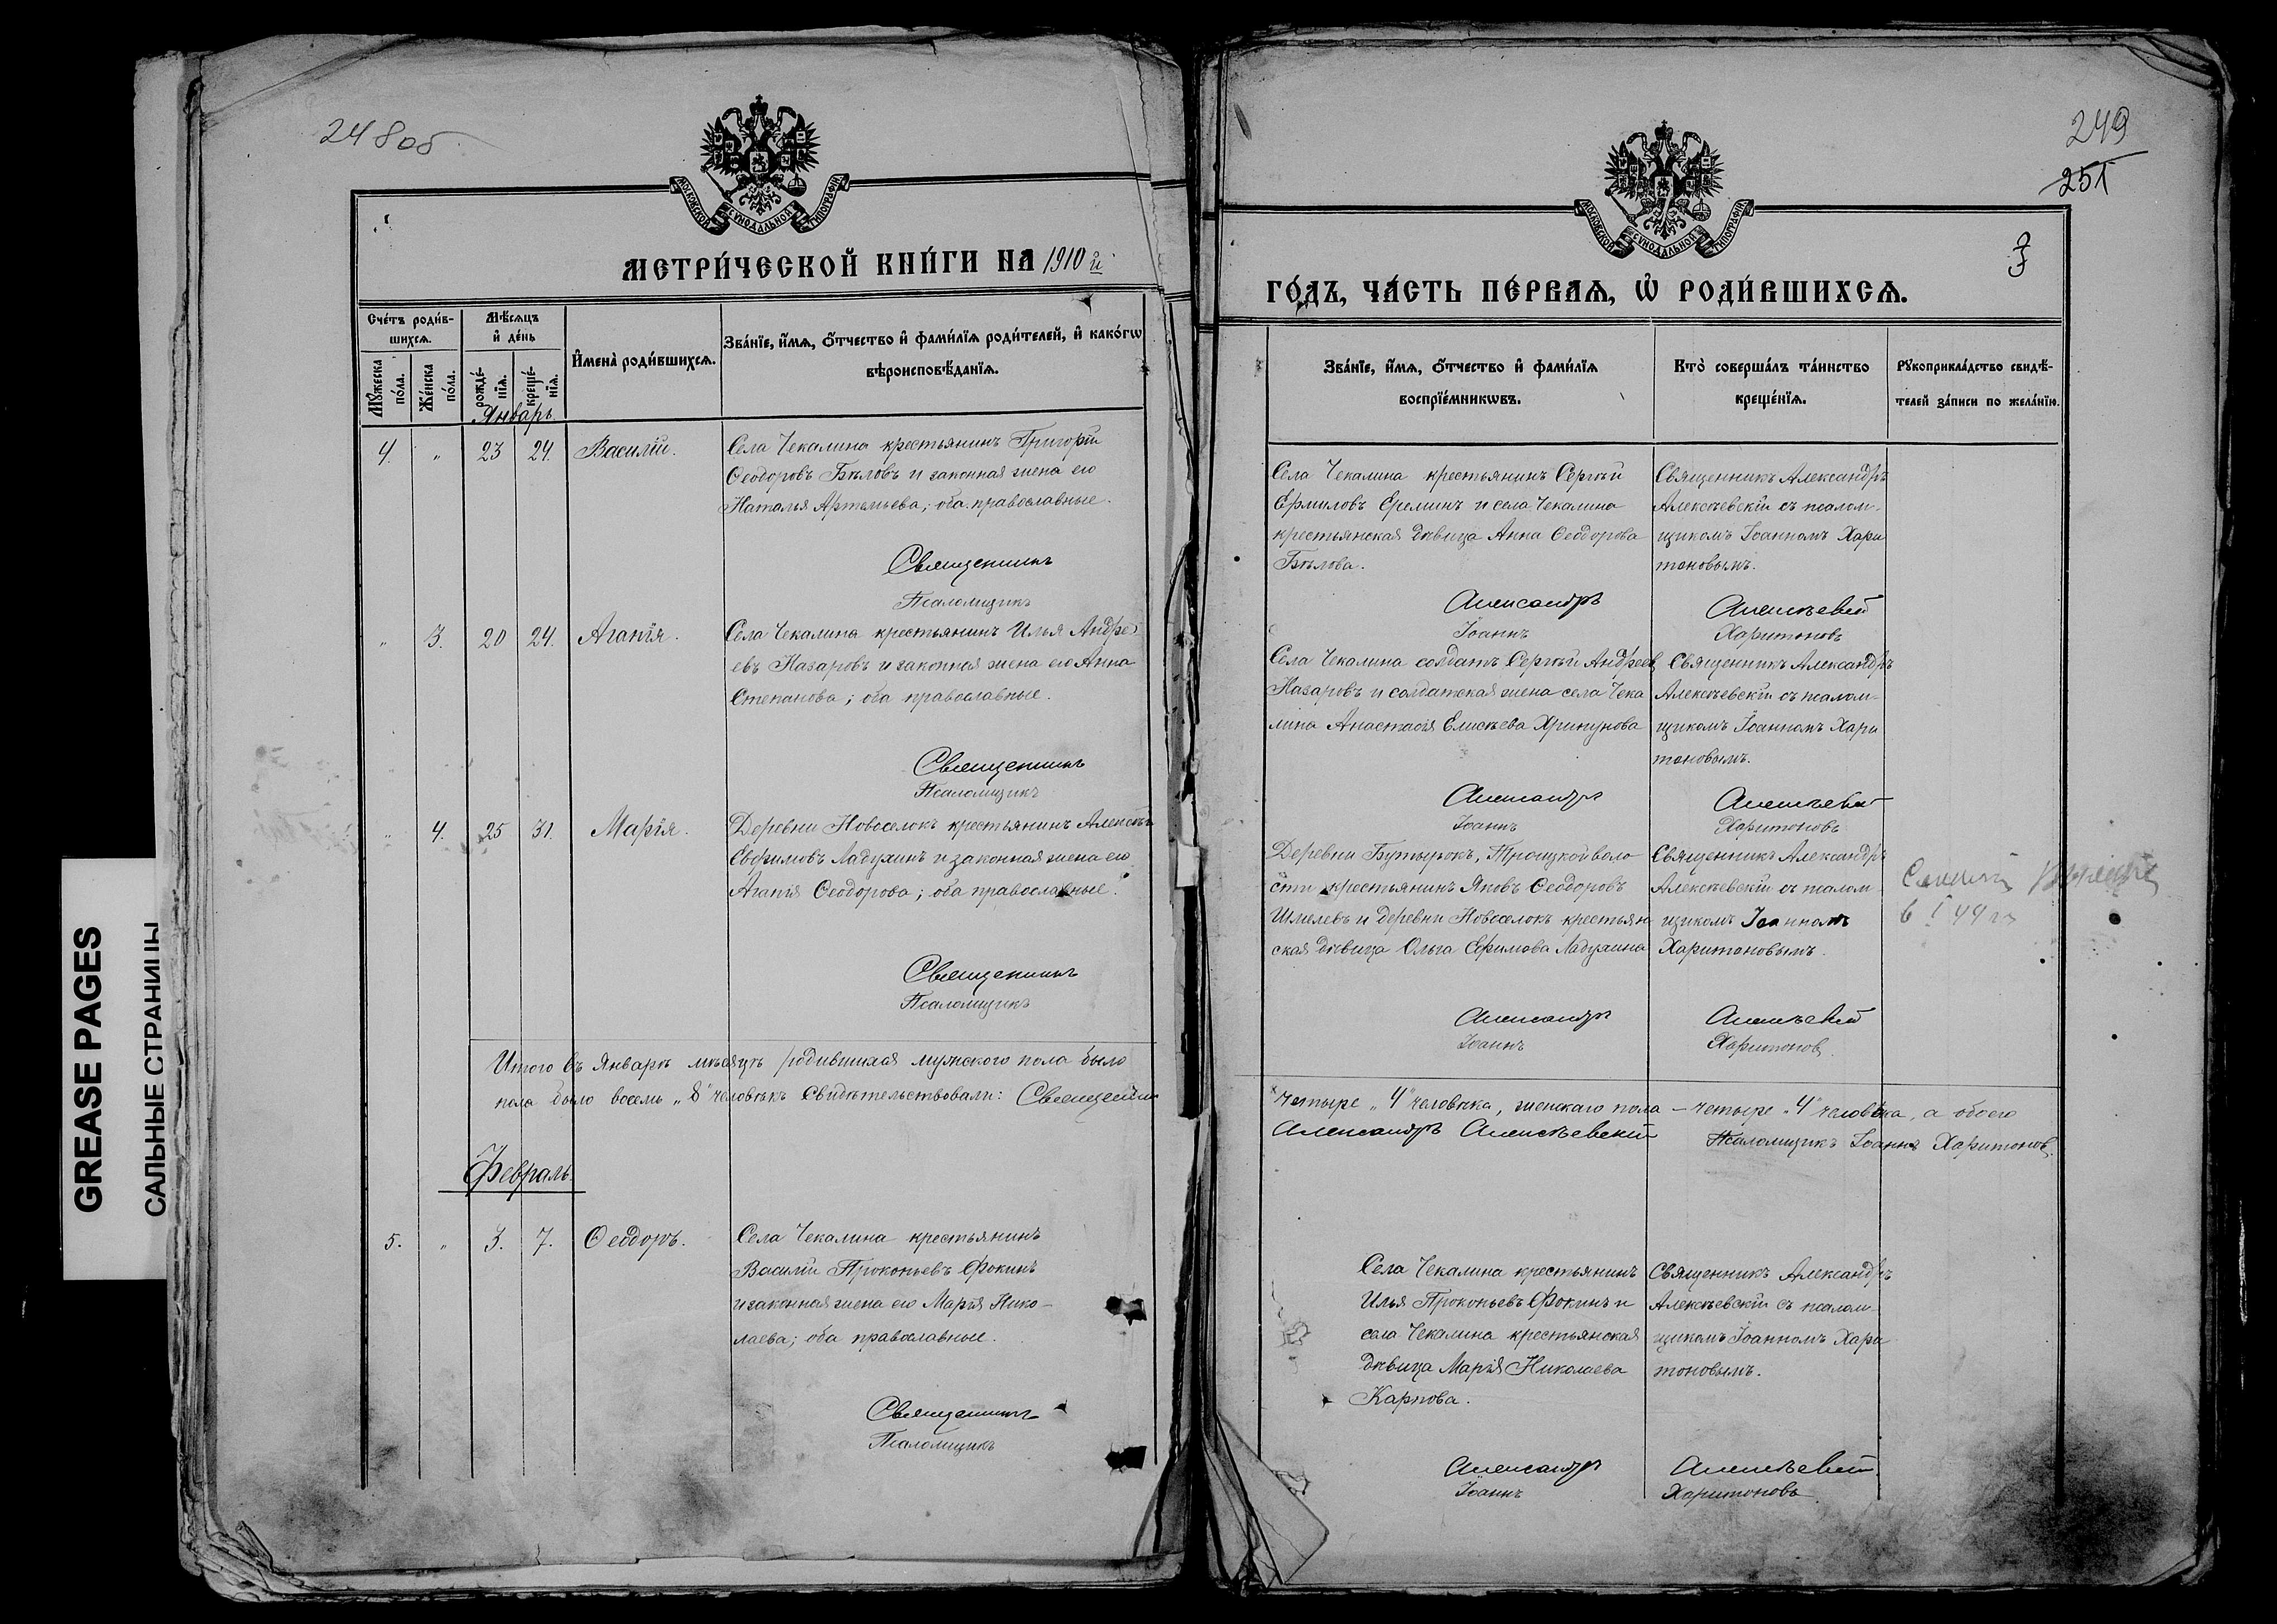 GREASE PAGES
САЛЬНЫЕ СТРАНИЦЫ
248 об
МОСКОВСКОЙ СѴНОДАЛЬНОЙ ТИПОГРАФІИ
МЕТРИ́ЧЕСКОЙ КНИ́ГИ НА 1910 й
Сче́тъ роди́в-
шихсѧ.
Мѣ́сѧцъ
и҆ де́нь
И҆мена̀ роди́вшихсѧ.
Зва́нїе, и҆́мѧ, ѻ҆́тчество и҆ фами́лїѧ роди́телей, и҆ како́гѡ
вѣроисповѣ́данїѧ.
Мꙋ́жеска
по́ла.
Же́нска
по́ла.
рожде́-
нїѧ.
креще́-
нїѧ.
Январь
4. " 23 24. Василій. Села Чекалина крестьянинъ Григорій
Ѳеодоровъ Бѣловъ и законная жена его
Наталья Артемьева; оба православные.
Священникъ
Псаломщикъ
" 3. 20 24. Агапія. Села Чекалина крестьянинъ Илья Андре-
евъ Назаровъ и законная жена его Анна
Степанова; оба православные.
Священникъ
Псаломщикъ
" 4. 25 31. Марія. Деревни Новоселокъ крестьянинъ Алексѣй
Евфимовъ Ладухинъ и законная жена его
Агапія Ѳеодорова; оба православные.
Священникъ
Псаломщикъ
Итого въ Январѣ мѣсяцѣ родившихся мужского пола было
пола было восемь „8" человѣкъ Свидѣтельствовали: Священникъ
Февраль.
5. " 3. 7. Ѳеодоръ. Села Чекалина крестьянинъ
Василій Прокопьевъ Фокинъ
и законная жена его Марія Нико-
лаева; оба православные.
Священникъ
Псаломщикъ
249
251
МОСКОВСКОЙ СѴНОДАЛЬНОЙ ТИПОГРАФІИ
3
ГО́ДЪ, ЧА́СТЬ ПЕ́РВАѦ, Ѡ҆ РОДИ́ВШИХСѦ.
Зва́нїе, и҆́мѧ, ѻ҆́тчество и҆ фами́лїѧ
воспрїе́мникѡвъ.
Кто̀ соверша́лъ та́инство
креще́нїѧ.
Рꙋкоприкла́дство свидѣ́-
телей за́писи по жела́нїю.
Села Чекалина крестьянинъ Сергѣй
Ермиловъ Ереминъ и села Чекалина
крестьянская дѣвица Анна Ѳеодорова
Бѣлова.
Священникъ Александръ
Алексѣевскій съ псалом-
щикомъ Іоанномъ Хари
тоновымъ.
Александръ Алексѣевскій
Іоаннъ Харитоновъ
Села Чекалина солдатъ Сергѣй Андреев
Назаровъ и солдатская жена села Чека
лина Анастасія Елисѣева Хрипунова
Священникъ Александръ
Алексѣевскій съ псалом-
щикомъ Іоанномъ Хари
тоновымъ.
Александръ Алексѣевскій
Іоаннъ Харитоновъ
Деревни Бутырокъ, Троицкой воло
сти крестьянинъ Яковъ Ѳеодоровъ
Шмелевъ и деревни Новоселокъ крестьян
ская дѣвица Ольга Ефимова Ладухина
Священникъ Александръ
Алексѣевскій съ псалом
щикомъ Іоанномъ
Харитоновымъ.
Александръ Алексѣевскій
Іоаннъ Харитоновъ.
четыре „4" человѣка, женскаго пола – четыре „4" человѣка, а обоего
Александръ Алексѣевскій Псаломщикъ Іоаннъ Харитоновъ.
Села Чекалина крестьянинъ
Илья Прокопьевъ Фокинъ и
села Чекалина крестьянская
дѣвица Марія Николаева
Карпова.
Священникъ Александръ
Алексѣевскій съ псалом-
щикомъ Іоанномъ Хари
тоновымъ.
Александръ Алексѣевскій
Іоаннъ Харитоновъ